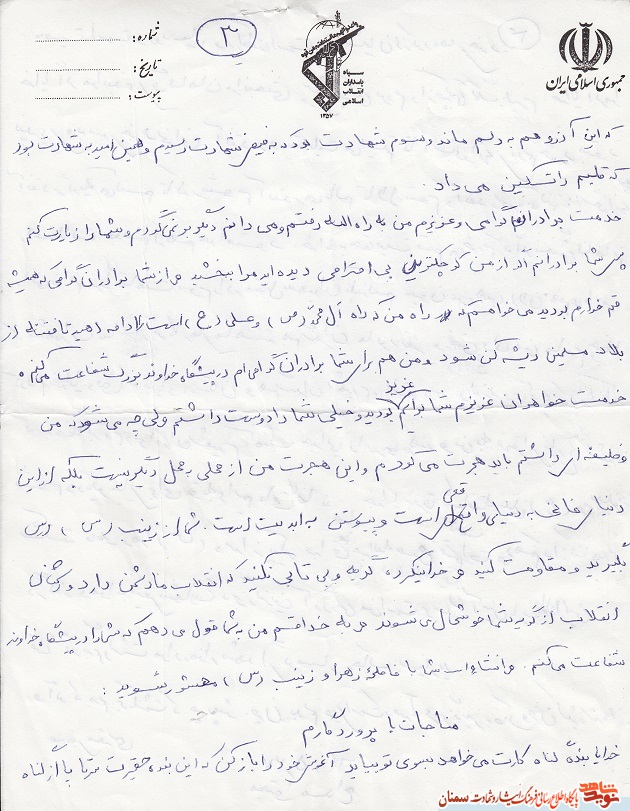 شماره:
تاریخ:
پیوست:
۳
سپاه
پاسداران
انقلاب
اسلامی
۱۳۵۷
جمهوری اسلامی ایران
که این آرزو هم به دلم ماند و سوم شهادت بود که به فیض شهادت رسیم و همین امید به شهادت بود
که قلبم را تسکین می داد.
خدمت برادران گرامی و عزیزم من به راه الله رفتم و می دانم دیگر بر نمی گردم و شما را زیارت کنم
پس شما برادرانم اگر از من کوچکترین بی احترامی دیده اید مرا ببخشید و از شما برادران گرامی که همیشه
غم خوارم بودید می خواهم که راه من که راه آل محمد (ص) و علی (ع) است ادامه دهید تا فتنه از
بلاد مسلمین ریشه کن شود و من هم برای شما برادران گرامی ام در پیشگاه خداوند بزرگ شفاعت می کنم.
خدمت خواهران عزیزم شما برایم عزیز بودید و خیلی شما را دوست داشتم ولی چه می شود که من
وظیفه ای داشتم باید هجرت می کردم و این هجرت من از محلی به محل دیگر نیست بلکه از این
دنیای فانی به دنیای واقعی است و پیوستن به ابدیت است. شما از زینب (س) درس
بگیرید و مقاومت کنید و خدا نکرده گریه و بی تابی نکنید که انقلاب ما دشمن دارد و دشمنان
انقلاب از گریه شما خوشحال می شوند و به خدا قسم من به شما قول می دهم که شما را در پیشگاه خداوند
شفاعت می کنم. و انشاءاله شما با فاطمه زهرا و زینب (س) محشور شوید:
مناجات با پروردگارم
خدایا بنده گناه کارت می خواهد بسوی تو بیاید آغوش خود را باز کن که این بنده حقیرت سرتا پا از گناه
نوید شاهد
پایگاه اطلاع رسانی فرهنگ ایثار و شهادت سمنان